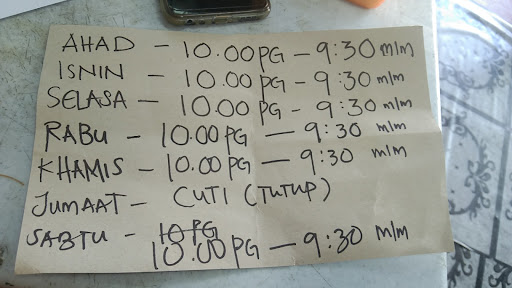 AHAD - 10.00PG - 9:30 m/m
ISNIN - 10.00PG - 9:30 m/m
SELASA - 10.00PG - 9:30 m/m
RABU - 10.00PG - 9:30 m/m
KHAMIS - 10.00PG - 9:30 m/m
JUMAAT - CUTI (TUTUP)
SABTU - 10PG
10.00PG - 9:30 m/m